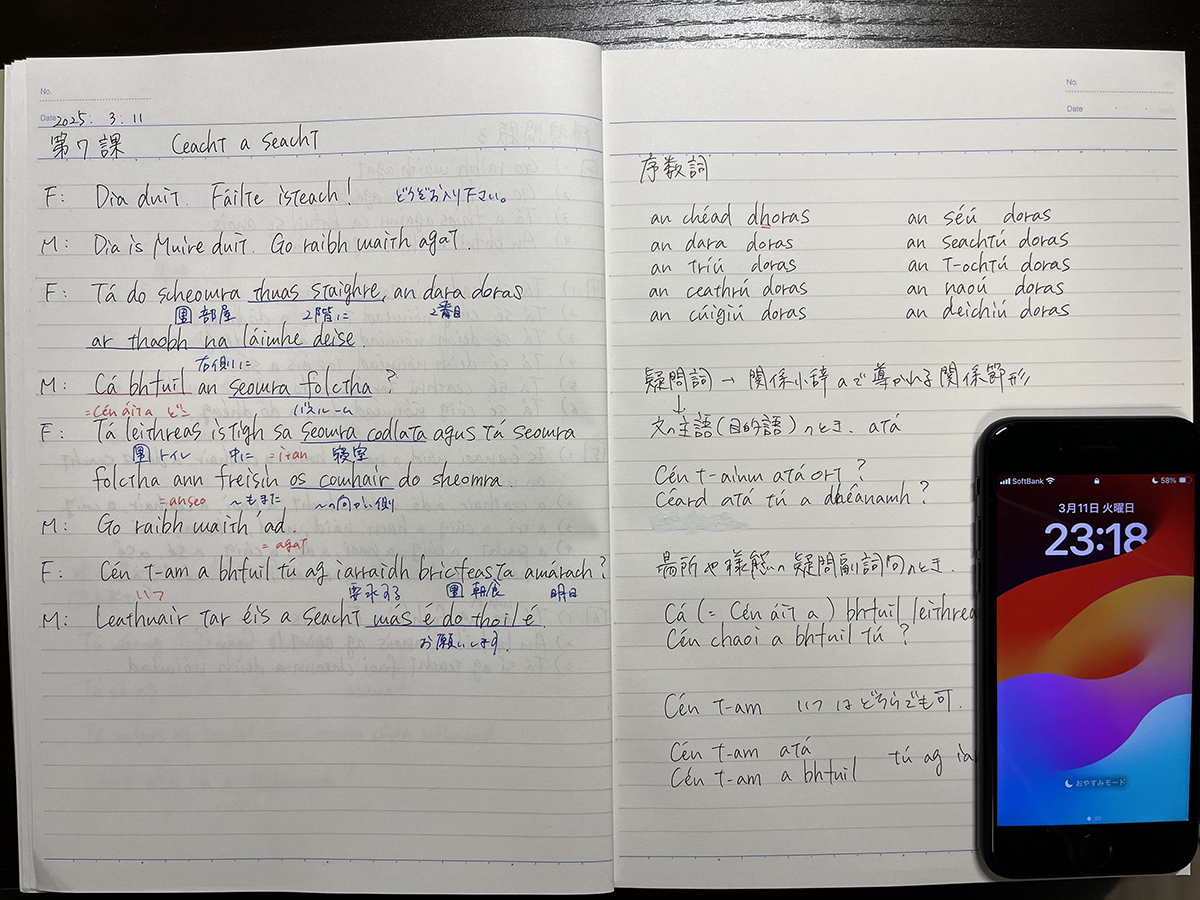 No.
Date 2025. 3. 11
第7課 Ceacht a Seacht
F: Dia duit. Fáilte isteach! どうぞお入り下さい。
M: Dia is Muire duit. Go raibh maith agat.
F: Tá do sheomra thuas staighre, an dara doras
部屋 2階に 2番目
ar thaobh na láimhe deise.
右側に
M: Cá bhfuil an seomra folctha?
=Cén áit a どこ バスルーム
F: Tá leithreas istigh sa seomra codlata agus tá seomra
トイレ 中に =i+an 寝室
folctha ann freisin os comhair do sheomra
=anseo ~もまた ~の向かい側
M: Go raibh maith 'ad.
= agat
F: Cén t-am a bhfuil tú ag iarraidh bricfeasta amárach?
いつ 要求する 朝食 明日
M: Leathuair tar éis a seacht más é do thoil é.
お願いします.
No.
Date
序数詞
an chéad dhoras an séú doras
an dara doras an seachtú doras
an tríú doras an t-ochtú doras
an ceathrú doras an naoú doras
an cúigiú doras an deichiú doras
疑問詞 → 関係小辞aで導かれる関係節形
↓
文の主語(目的語)のとき. atá
Cén t-ainm atá ort?
Céard atá tú a dhéanamh?
場所や様態の疑問副詞句のとき.
Cá (= Cén áit a) bhfuil leithrea
Cén chaoi a bhfuil tú?
Cén t-am いつ はどちらでも可.
Cén t-am atá
Cén t-am a bhfuil tú ag ia
SoftBank 58%
3月11日 火曜日
23:18
おやすみモード